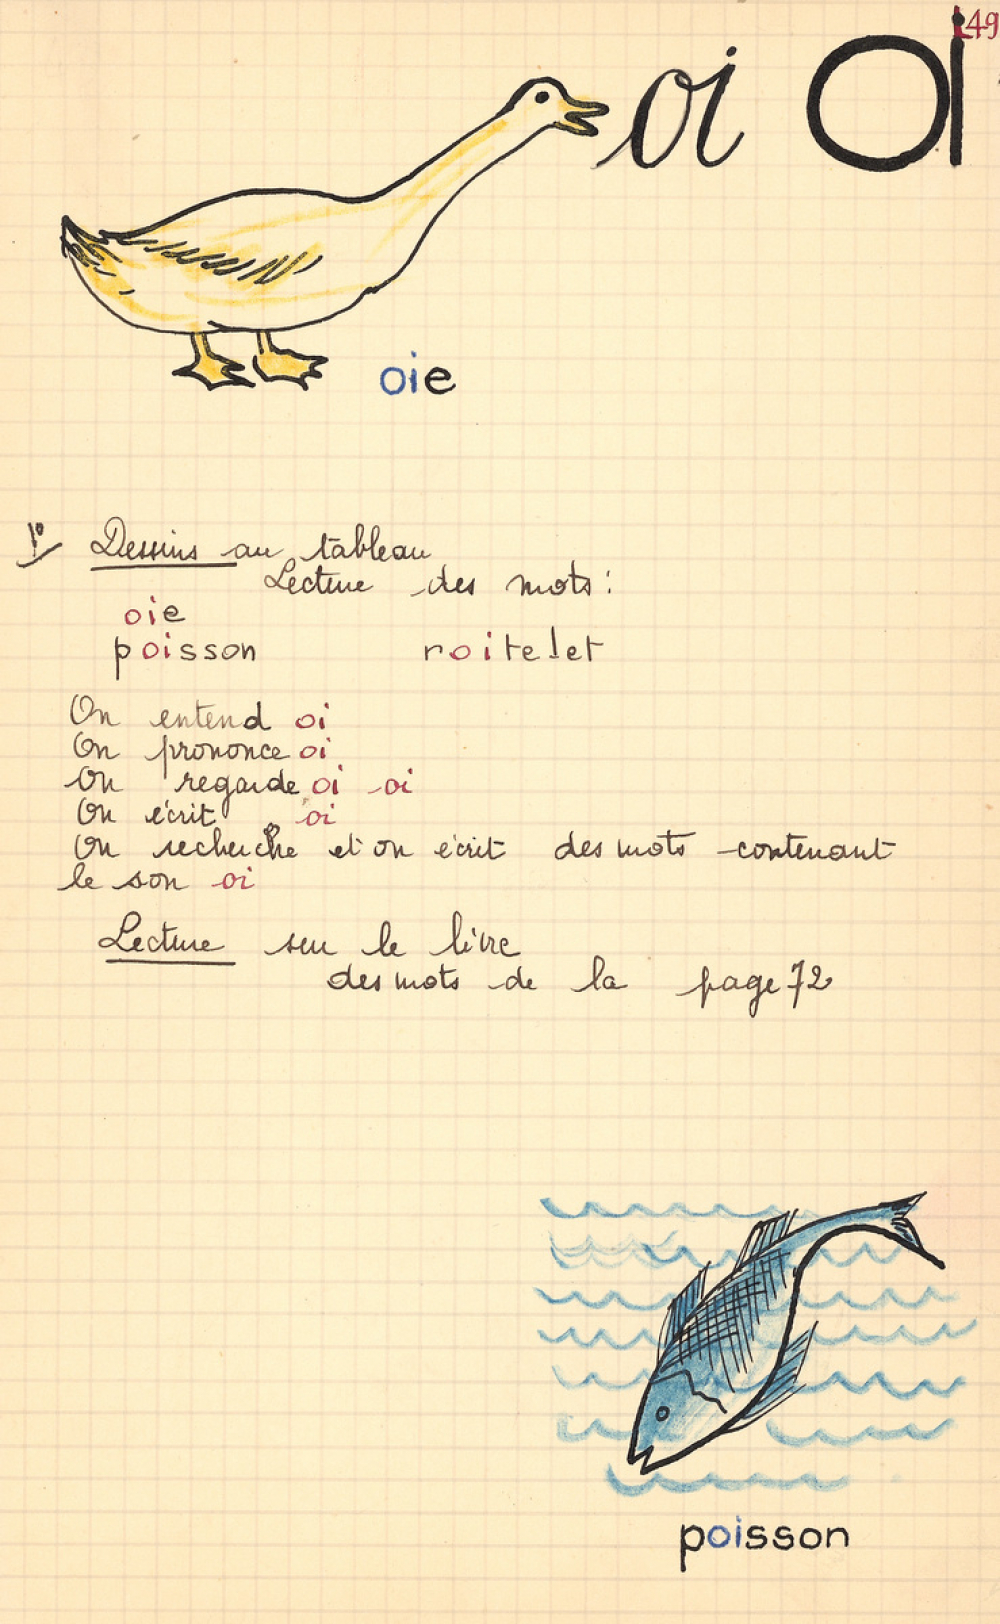 49
oi oi
oie
1º/ Dessins au tableau
Lecture des mots :
oie
poisson roitelet
On entend oi
On prononce oi
On regarde oi oi
On écrit oi
On recherche et on écrit des mots contenant
le son oi
Lecture sur le livre
des mots de la page 72
poisson